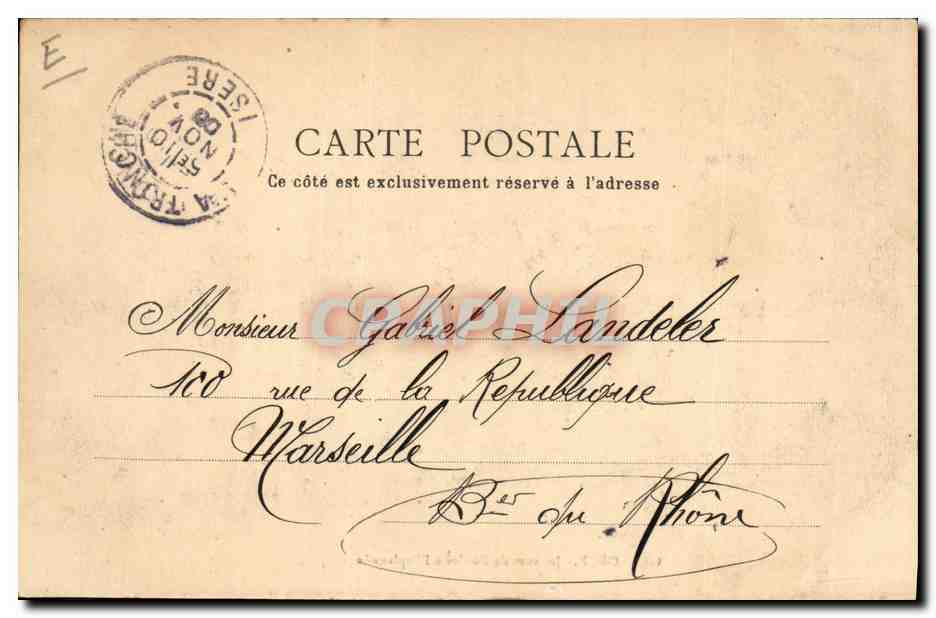 E
LA TRONCHE
ISÈRE
10
NOV.
CARTE POSTALE
Ce côté est exclusivement réservé à l'adresse
CPAPHIL
Monsieur Gabriel Landeler
100 rue de la Republique
Marseille
B^er du Rhône